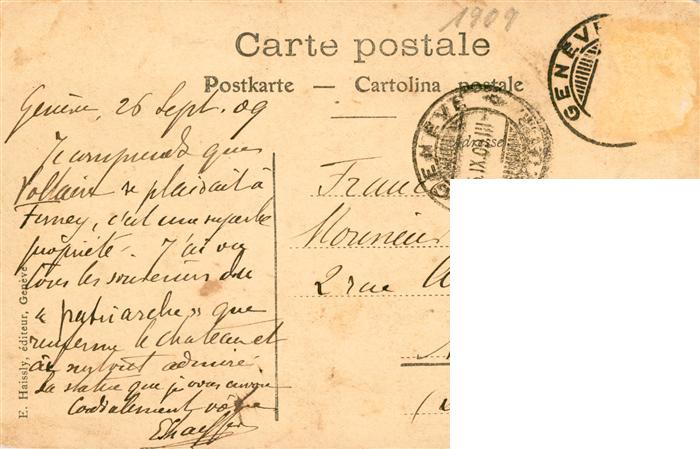 1909
Carte postale
Postkarte — Cartolina postale
GENÈVE
GENÈVE
IX.09
Adresse
Genève, 26 Sept. 09
Je comprends que
Voltaire se plaisait à
Ferney, c'est une superbe
propriété. J'ai vu
tous les souvenirs du
« patriarche » que
renferme le chateau et
ai surtout admiré
la statue que je vous envoie
Cordialement vôtre
France
Monsieur
2 rue
E. Haissly, éditeur, Genève